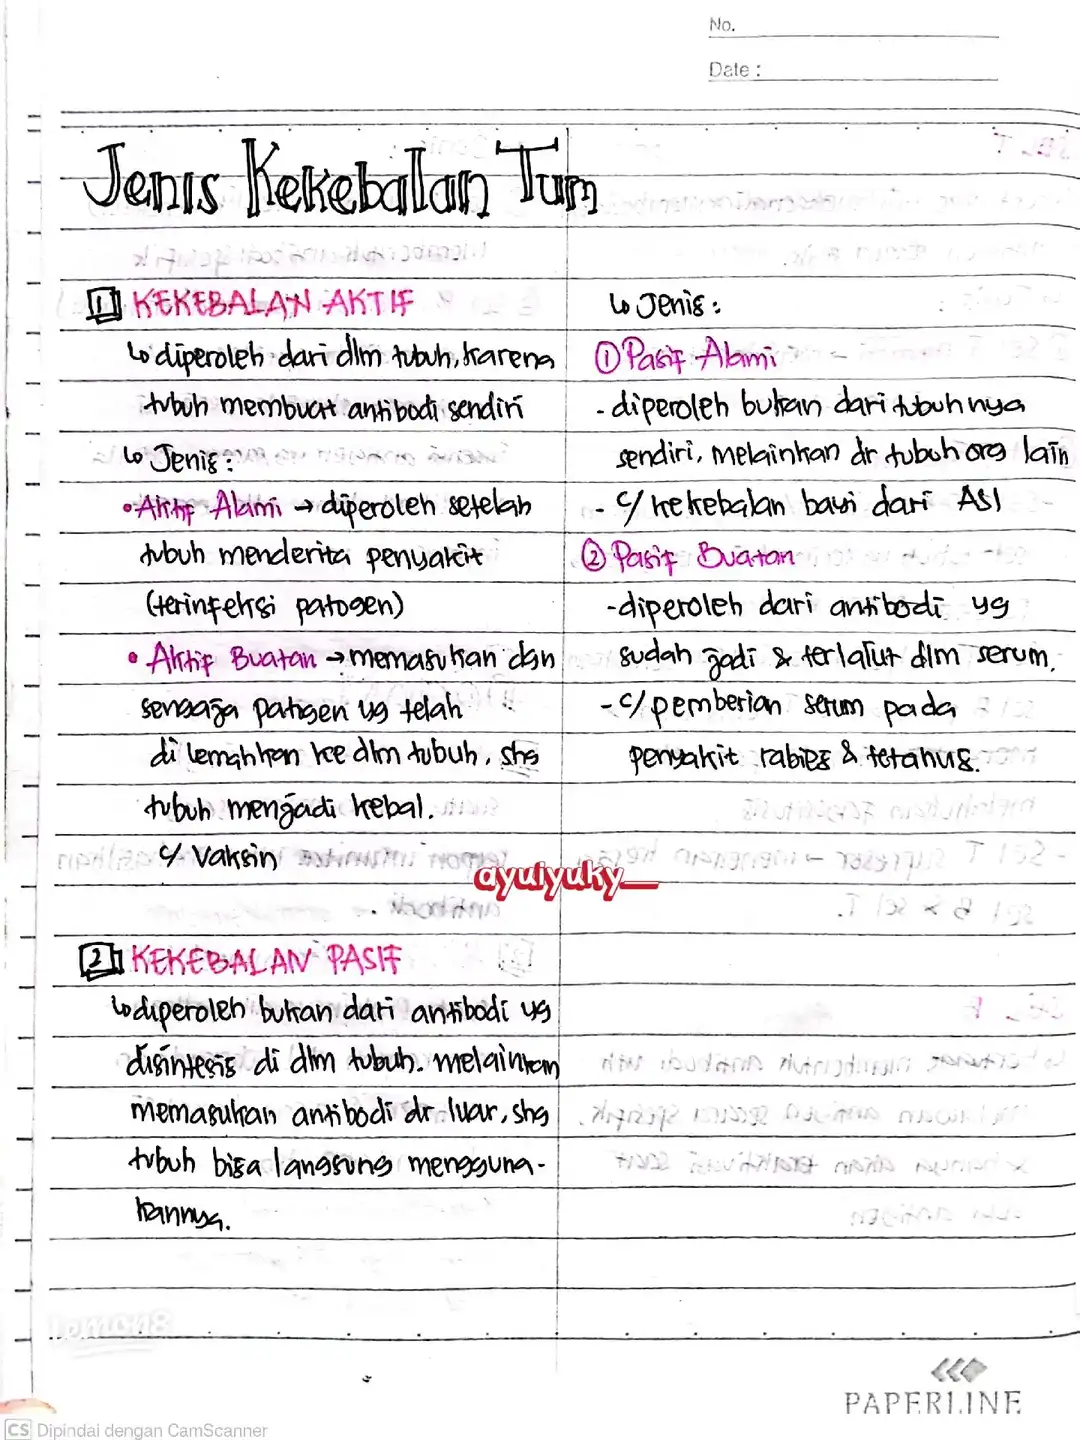 No.
Date :
Jenis Kekebalan Tum
1 KEKEBALAN AKTIF
↳ diperoleh dari dlm tubuh, karena
tubuh membuat antibodi sendiri
↳ Jenis :
• Aktif Alami → diperoleh setelah
tubuh menderita penyakit
(terinfeksi patogen)
• Aktif Buatan → memasukan dgn
sengaja patogen yg telah
di lemahkan ke dlm tubuh, shg
tubuh menjadi kebal.
c/ Vaksin
2 KEKEBALAN PASIF
↳ diperoleh bukan dari antibodi yg
disintesis di dlm tubuh. melainkan
memasukan antibodi dr luar, shg
tubuh bisa langsung mengguna-
kannya.
↳ Jenis :
① Pasif Alami
- diperoleh bukan dari tubuhnya
sendiri, melainkan dr tubuh org lain
- c/ kekebalan bayi dari ASI
② Pasif Buatan
- diperoleh dari antibodi yg
sudah jadi & terlarut dlm serum.
- c/ pemberian serum pada
penyakit rabies & tetanus.
ayuiyuky__
Lemon8
PAPERLINE
CS Dipindai dengan CamScanner